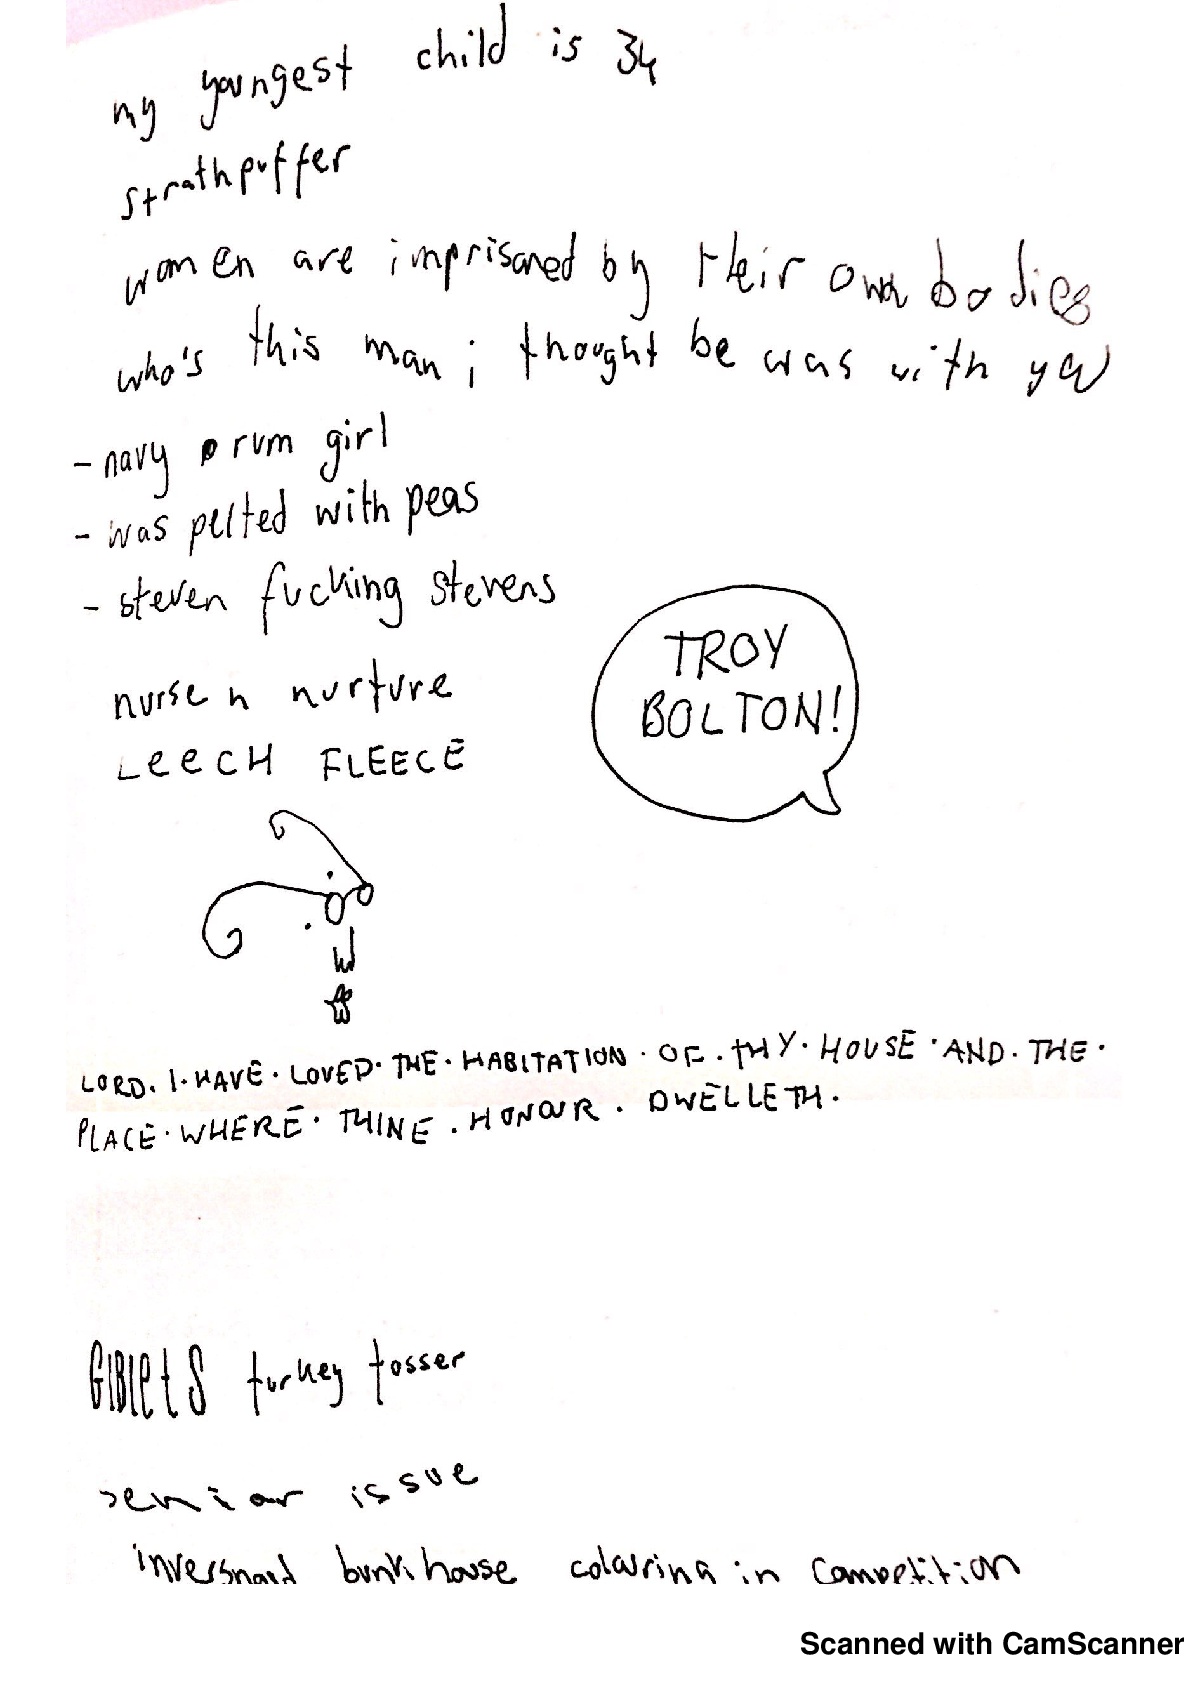 my youngest child is 34
strathpuffer
women are imprisoned by their own bodies
who's this man; thought he was with you
- navy rum girl
- was pelted with peas
- steven fucking stevens
TROY
BOLTON!
nurse n nurture
LeeCH FLEECE
LORD. I. HAVE. LOVED. THE. HABITATION. OF. tHY. HOUSE. AND. THE.
PLACE. WHERE. THINE. HONOUR. DWELLETH.
GIBLetS turkey tosser
senior issue
inversnaid bunkhouse colouring in competition
Scanned with CamScanner